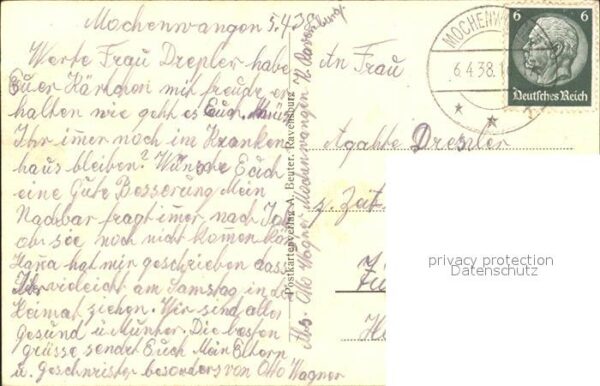 Mochenwangen 5.4.38
Werte Frau Drepler habe
Euer Kärtchen mit freude er
halten wie geht es Euch. Müßt
Ihr imer noch im Kranken
haus bleiben? Wünsche Euch
eine Gute Besserung Mein
Nachbar fragt imer nach
ob sie noch nicht komen
Hana hat mir geschrieben dass
Ihr vieleicht am Samstag in die
Heimat ziehen. Wir sind aller
Gesund u. Munter. Die besten
grüsse sendet Euch Mein Eltern
u. Geschwister besonders von Otto Wagner
Postkartenverlag A. Beuter, Ravensburg
Abs. Otto Wagner Mochenwangen b. Ravensburg.
An Frau
Agahte Drepler
z. Zeit
MOCHENW
6.4.38.1
6 6
Deutsches Reich
privacy protection
Datenschutz